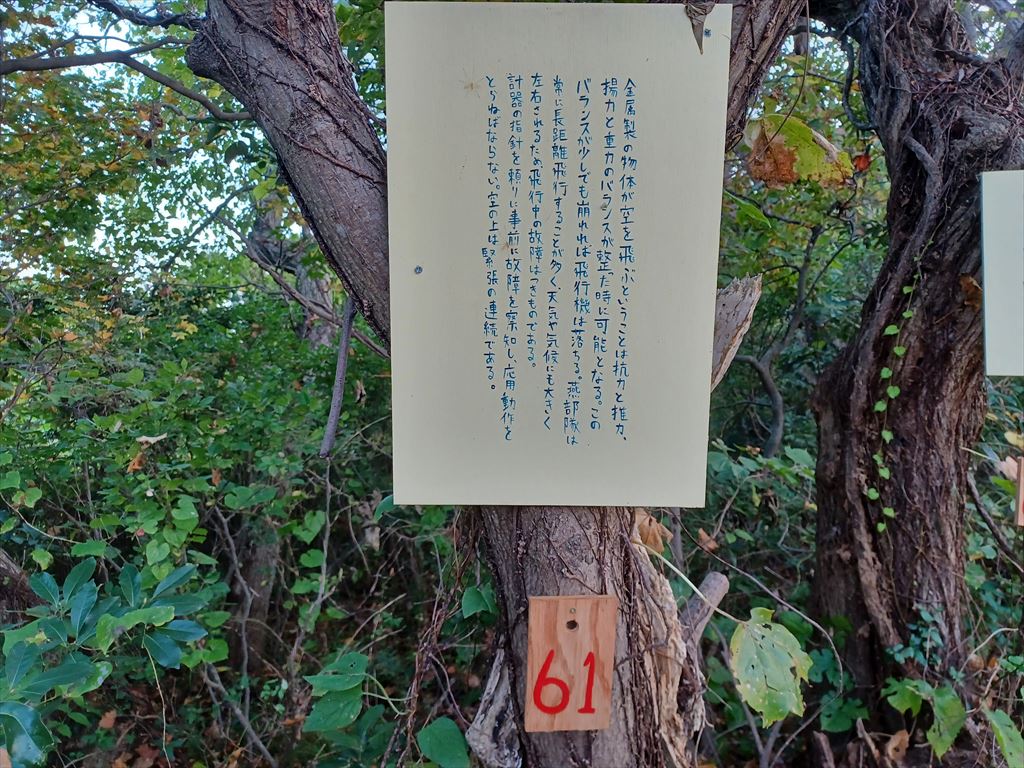 金属製の物体が空を飛ぶということは抗力と推力、
揚力と重力のバランスが整った時に可能となる。この
バランスが少しでも崩れれば飛行機は落ちる。燕部隊は
常に長距離飛行することが多く、天気や気候にも大きく
左右されるため飛行中の故障はつきものである。
計器の指針を頼りに事前に故障を察知し、応用動作を
とらねばならない。空の上は緊張の連続である。
61